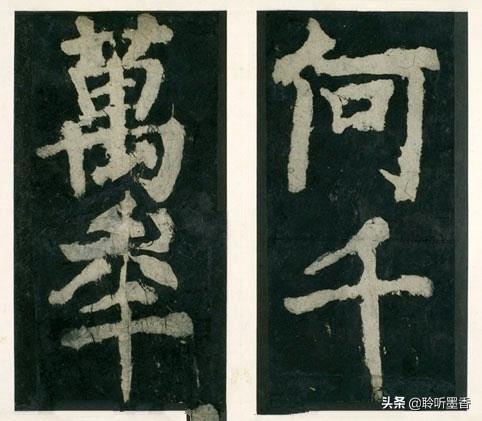 何千
萬年
头条 @聆听墨香